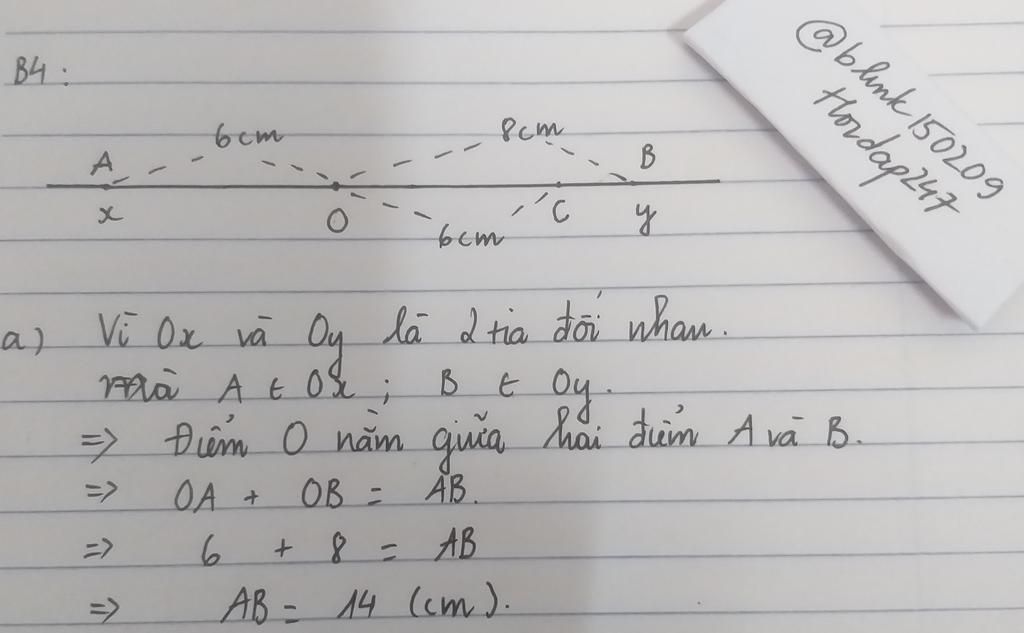 B4:
6cm
8cm
A
B
x
O
C
y
6cm
@blink150209
Hoidap247
a) Vì Ox và Oy là 2 tia đối nhau.
mà A ∈ Ox ; B ∈ Oy.
=> Điểm O nằm giữa hai điểm A và B.
=> OA + OB = AB.
=> 6 + 8 = AB
=> AB = 14 (cm).